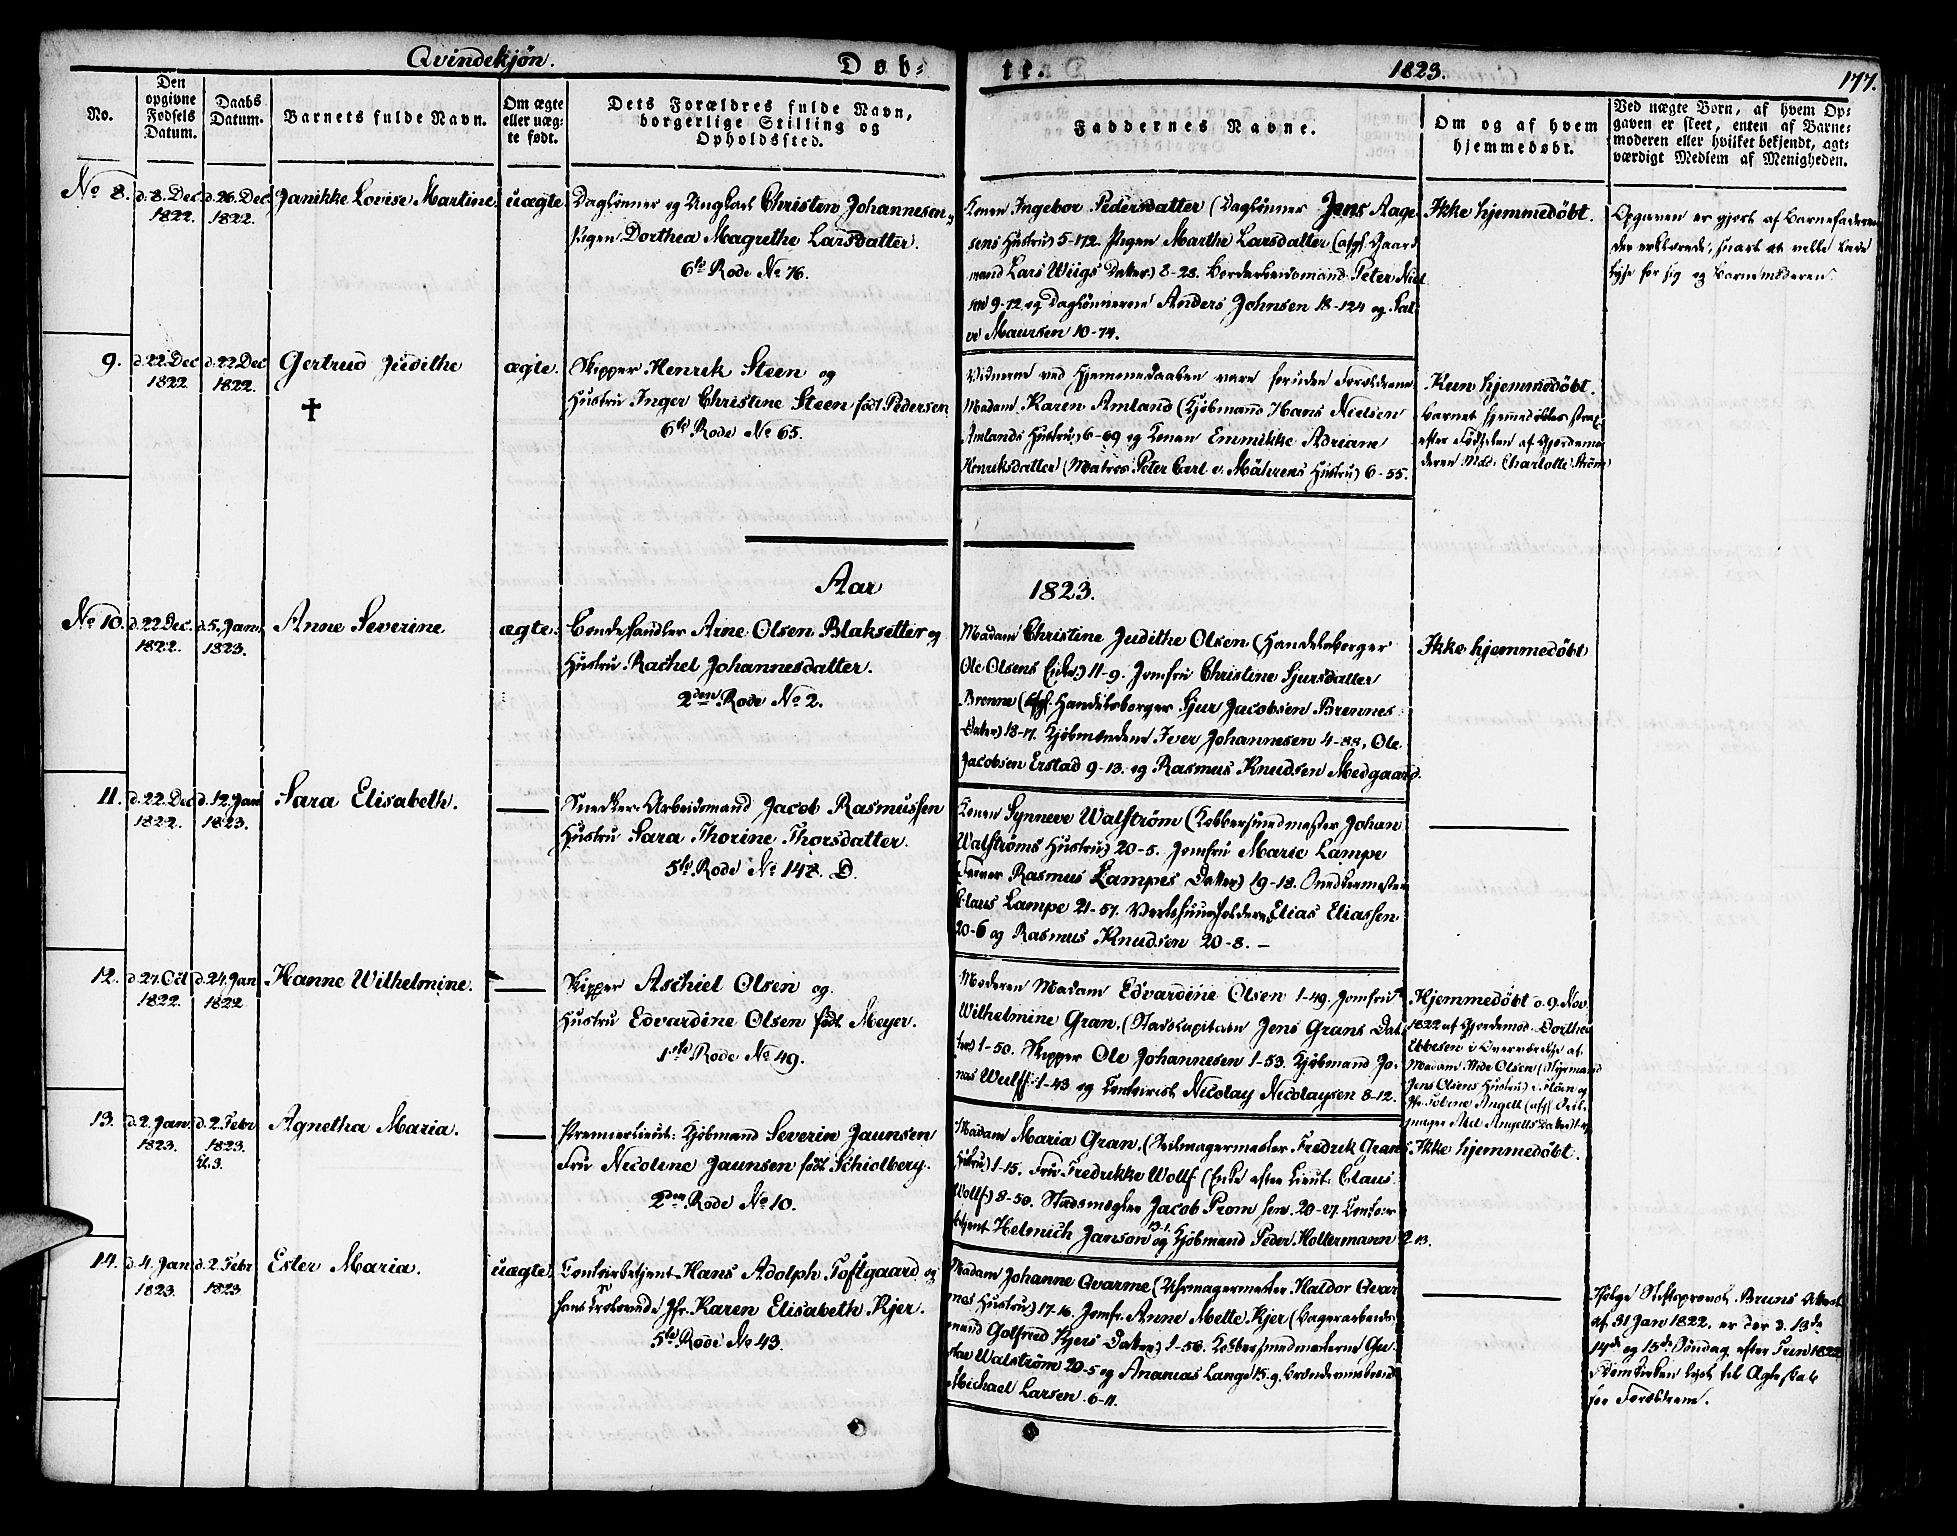 Qvindekjøn.
Døb-
te.
1823.
177.
No.
Den
opgivne
Fødsels
Datum.
Daabs
Datum.
Barnets fulde Navn.
Om ægte
eller uæg-
te født.
Dets Forældres fulde Navn,
borgerlige Stilling og
Opholdssted.
Faddernes Navne.
Om og af hvem
hjemmedøbt.
Ved uægte Børn, af hvem Op-
gaven er skeet, enten af Barne-
moderen eller hvilket bekjendt, agt-
værdigt Medlem af Menigheden.
No 8.
d. 8. Dec.
1822.
d. 26. Dec
1822.
Janikke Lovise Martine
uægte
Daglønner og Ungkarl Christen Johannesen,
Pigen Dorthea Magrethe Larsdatter.
6te Rode No 76.
Konen Ingebor Pedersdatter (Daglønner Jens Aage-
sens Hustru) 5-172. Pigen Marthe Larsdatter (afgl. Gaard
mand Lars Wiigs Datter) 8-23. Borderbeidsmand Peter Niel
sen 9-72 og Daglønnerne Anders Johnsen 18-124 og
Maursen 10-74.
Ikke hjemmedøbt.
Opgaven er gjort af Barnefaderen
der erklærede, snart at ville lade
lyse for sig og Barnemoderen.
9.
d. 22. Dec
1822
d. 22 Dec
1822.
Gertrud Judithe
✝
ægte.
Skipper Henrik Steen og
Hustru Inger Christine Steen født Pedersen
6te Rode No 65.
Vidnerne ved Hjemmedaaben vare foruden Forældrene
Madam Karen Amland (Kjøbmand Hans Nielsen
Amlands Hustru) 6-69 og Konen Emmikke Adriane
Henriksdatter (Matros Peter Carl v. Mährens Hustru) 6-55.
Kun hjemmedøbt.
Barnet hjemmedøbtes strax
efter Fødselen af Gjordemo-
deren Mad: Charlotte Strøm
Aar
1823.
No 10.
d. 22 Dec.
1822.
d. 5. Jan.
1823.
Anne Severine
ægte.
Bondehandler Arne Olsen Blaksetter og
Hustru Rachel Johannesdatter.
2den Rode No 2.
Madam Christine Judithe Olsen (Handelsborger
Ole Olsens Enke) 11-9. Jomfru Christine Sjursdatter
Brenne (afgl. Handelsborger Sjur Jacobsen Brennes
Datter) 18-17. Kjøbmændene Iver Johannesen 4-88, Ole
Jacobsen Erstad 9-13. og Rasmus Knudsen Medgaard
Ikke hjemmedøbt
11.
d. 22. Dec
1822.
d. 12. Jan
1823.
Sara Elisabeth.
Snedker-Arbeidsmand Jacob Rasmussen
Hustru Sara Thorine Thorsdatter.
5te Rode No 148. D.
Konen Synneve Walstrøm (Kobbersmedmester Johan
Walstrøms Hustru) 20-5. Jomfru Marie Lampe
Rasmus Lampes Datter) 19-18. Snedkermester
Claus Lampe 21-57. Vertshuusholderne Elias Eliassen
20-6 og Rasmus Knudsen 20-8. –
12.
d. 27. Oct
1822.
d. 24. Jan
1822
Hanne Wilhelmine.
Skipper Aschiel Olsen og
Hustru Edvardine Olsen født Meyer.
1ste Rode No 49.
Moderen Madam Edvardine Olsen 1-49. Jomfru
Wilhelmine Gran. (Stadskapitain Jens Grans Dat-
ter) 1-50. Skipper Ole Johannesen 1-53. Kjøbmand Jo-
nas Wulff 1-43 og Contoirist Nicolay Nicolaysen 8-12.
Hjemmedøbt d. 9. Nov.
1822 af Gjordemod. Dorthea
Ebbesen i Overværelse af
Madam Olsen (Styrmand
Jens Olsens Hustru) og
Jfr. Angell (afgl.
13.
d. 2. Jan
1823.
d. 2. Febr
1823.
Agnetha Maria.
Premierlieut: Kjøbmand Severin Jaunsen
Fru Nicoline Jaunsen født Schiolberg.
2den Rode No 10.
Madam Maria Gran. (Seilmagermester Fredrik Gran
Hustru) 1-15. Fru Fredrikke Wolff (Enke efter Lieut: Claus
Wolff) 8-50. Stadsmægler Jacob Prom sen. 20-27. Contoir
betjent Helmich Janson 13-1. og Kjøbmand Peder Holtermann 2-13.
Ikke hjemmedøbt.
14.
d. 4. Jan
1823.
d. 2. Febr
1823
Ester Maria.
uægte.
Contoirbetjent Hans Adolph Toftgaard og
hans Trolovede Jfr. Karen Elisabeth Kjer.
5te Rode No 43.
Madam Johanne Qvarme (Uhrmagermester Haldor Qvar
mes Hustru) 17-16. Jomfr. Anne Mette Kjer (Bagerarbeids-
mand Gotfried Kjers Datter) 1-56. Kobbersmedmesterne Gu-
stav Walstrøm 20-5 og Ananias Lange 15-9.
Michael Larsen 6-11.
Ifølge Stiftsprovst Bruns Attest
af 31 Jan 1822. er der d. 13de
14de og 15de Søndag efter Trin 1822
i Domkirken lyst til Ægteskab
for Forældrene.